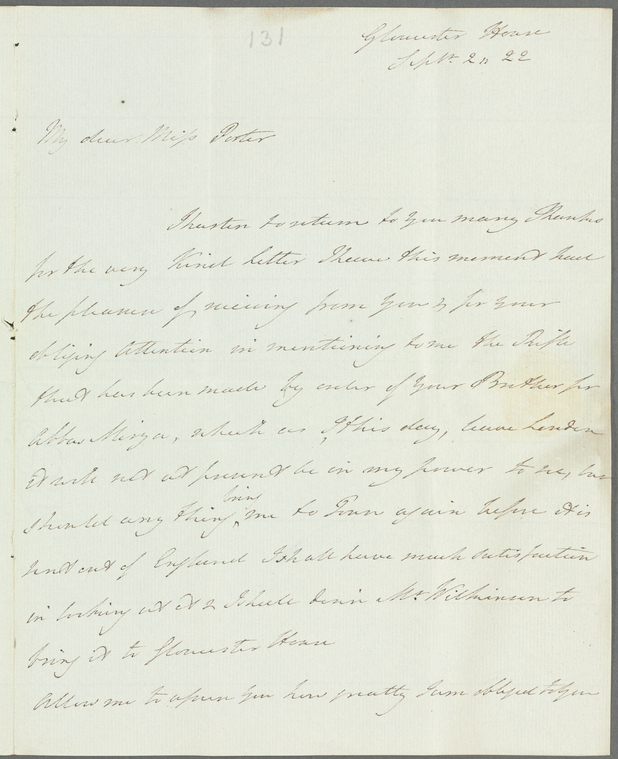 131
Gloucester House
Septr. 2n 22
My dear Miss Porter
I hasten to return to you many Thanks
for the very Kind letter I have this moment had
the pleasure of receiving from you & for your
obliging attention in mentioning to me the Rifle
that has been made by order of your Brother for
Abbas Mirza, which as I, this day, leave London
it will not at present be in my power to see, but
should any thing bring me to Town again before it is
sent out of England I shall have much satisfaction
in looking at it & I shall desire Mr. Wilkinson to
bring it to Gloucester House
Allow me to assure you how greatly I am obliged to you